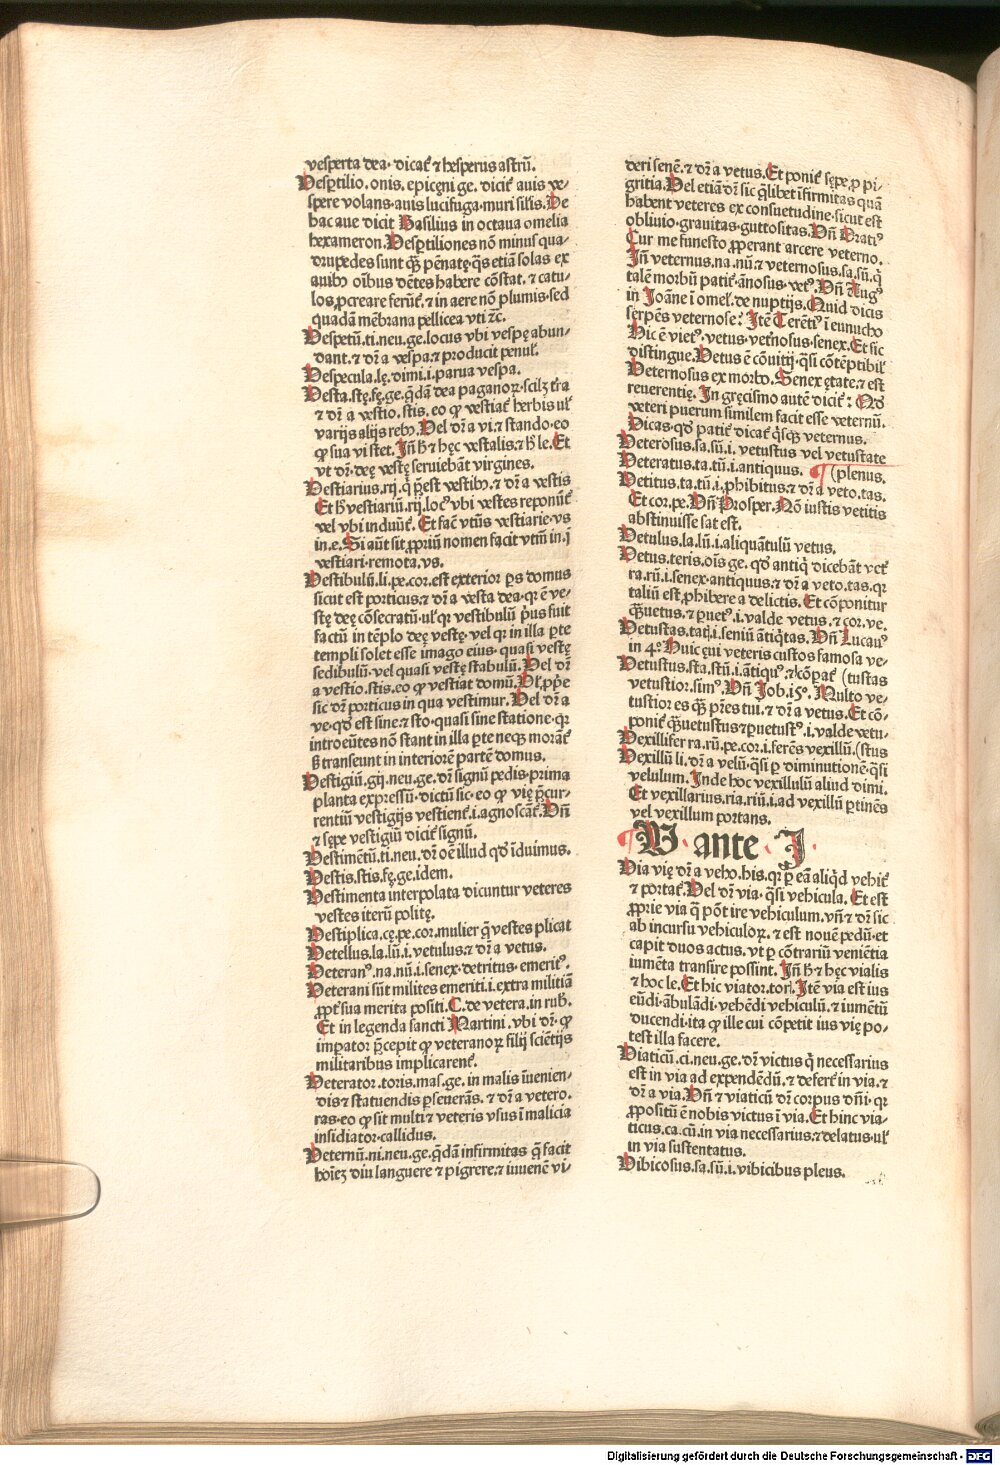 vesperta dea· dicat᷑ ⁊ hesperus astrū.
Vesꝑtilio.onis.epicęni ge. dicit᷑ auis ve-
spere volans·auis lucifuga·muri silis.De
hac aue dicit Basilius in octaua omelia
hexameron.Vesꝑtiliones nō minus qua-
drupedes sunt q̄ꝫ pēnatę·q̄s etiā solas ex
auibꝰ oībus dētes habere cōstat.⁊ catu-
los ꝓcreare ferūt᷑.⁊ in aere nō plumis·sed
quadā mēbrana pellicea vti ⁊c̄.
Vespetū.ti.neu.ge.locus vbi vespę abun-
dant.⁊ dr̄ a vespa.⁊ producit penul᷑.
Vespecula.lę.dimi.i.parua vespa.
Vesta.stę.fę.ge.q̄dā dea paganoꝝ·scilꝫ t᷑ra
⁊ dr̄ a vestio.stis.eo ꝙ vestiat᷑ herbis ul᷑
varijs alijs rebꝰ.Vel dr̄ a vi.⁊ stando·eo
ꝙ sua vi stet.Jn̄ h̄ ⁊ hęc vestalis.⁊ h̄ le.Et
vt dr̄·deę vestę seruiebāt virgines.
Vestiarius.rij.q̄ p̄est vestibꝰ.⁊ dr̄ a vestis
Et h̄ vestiariū.rij.locꝰ vbi vestes reponūt᷑
vel vbi induūt᷑.Et fac̄ vtūs vestiarie·vs
in.e.Si aūt sit ꝓpriū nomen facit vtm̄ in.j
vestiari·remota.vs.
Vestibulū.li.pe.cor.est exterior ꝑs domus
sicut est porticus.⁊ dr̄ a vesta dea·qr ē ve-
stę deę cōsecratū·ul᷑ qr vestibulū p̄us fuit
factū in tēplo deę vestę·vel qr in illa ꝑte
templi solet esse imago eius·quasi vestę
sedibulū·vel quasi vestę stabulū.Vel dr̄
a vestio.stis.eo ꝙ vestiat domū.Ul᷑ ꝓp̄e
sic dr̄ porticus in qua vestimur.Vel dr̄ a
ve·qd̓ est sine.⁊ sto·quasi sine statione·qr
introeūtes nō stant in illa ꝑte neqꝫ morāt᷑
ꝭ transeunt in interiorē partē domus.
Vestigiū.gij.neu.ge.dr̄ signū pedis·prima
planta expressū·dictū sic·eo ꝙ vię p̄cur-
rentiū vestigijs vestient᷑.i.agnoscāt᷑.Vn̄
⁊ sępe vestigiū dicit᷑ signū.
Vestimētū.ti.neu.dr̄ oē illud qd̓ īduimus.
Vestis.stis.fę.ge.idem.
Vestimenta interpolata dicuntur veteres
vestes iterū politę.
Vestiplica.cę.pe.cor.mulier q̄ vestes plicat
Vetellus.la.lū.i.vetulus.⁊ dr̄ a vetus.
Veteranꝰ.na.nū.i.senex·detritus·emeritꝰ.
Veterani sūt milites emeriti.i.extra militiā
ꝓpt᷑ sua merita positi.C.de vetera.in rub᷑.
Et in legenda sancti Martini.vbi dr̄·ꝙ
imꝑator p̄cepit ꝙ veteranoꝝ filij sciētijs
militaribus implicarent᷑.
Veterator.toris.mas.ge.in malis īuenien-
dis ⁊ statuendis ꝑseuerās.⁊ dr̄ a vetero.
ras·eo ꝙ sit multi ⁊ veteris vsus ī malicia
insidiator·callidus.
Veternū.ni.neu.ge.q̄dā infirmitas q̄ facit
hoīeꝫ diu languere ⁊ pigrere.⁊ iuuenē vi-
deri senē.⁊ dr̄ a vetus.Et ponit᷑ sępe ꝓ pi-
gritia.Vel etiā dr̄ sic q̄libet īfirmitas quā
habent veteres ex consuetudine·sicut est
obliuio·grauitas·guttositas.Vn̄ Oratiꝰ
Cur me funesto ꝓperant arcere veterno.
Jn̄ veternus.na.nū.⁊ veternosus.sa.sū.q̄
talē morbū patit᷑·ānosus·vetꝰ.Vn̄ Augꝰ
in Joāne ī omel᷑.de nuptijs.Quid dicis
serpēs veternose? Jtē Terētiꝰ ī eunucho
Hic ē vietꝰ·vetus·vet᷑nosus·senex.Et sic
distingue.Vetus ē cōuitij·q̄si cōtēptibil᷑
Veternosus ex morbo.Senex ętate.⁊ est
reuerentię.Jn gręcismo autē dicit᷑: Qd̓
veteri puerum similem facit esse veternū.
Dicas·qd̓ patit᷑ dicat᷑ q̄sq̄ꝫ veternus.
Veterosus.sa.sū.i.vetustus vel vetustate
Veteratus.ta.tū.i.antiquus. ¶ (plenus.
Vetitus.ta.tū.i.ꝓhibitus.⁊ dr̄ a veto.tas.
Et cor.pe.Vn̄ Prosper.Nō iustis vetitis
abstinuisse sat est.
Vetulus.la.lū.i.aliquātulū vetus.
Vetus.teris.oīs ge.qd̓ antiq̄ dicebāt vet᷑
ra.rū.i.senex·antiquus.⁊ dr̄ a veto.tas.qr
taliū est ꝓhibere a delictis.Et cōponitur
q̄ꝫuetus.⁊ ꝑuetꝰ.i.valde vetus.⁊ cor.ve.
Vetustas.tatj.i.seniū ātiq̄tas.Vn̄ Lucanꝰ
in 4º.Huic qui veteris custos famosa ve-
Vetustus.sta.stū.i.ātiquꝰ.⁊ cōꝑat᷑ (tustas
vetustior.simꝰ.Vn̄ Job.15º.Multo ve-
tustior es q̄ꝫ p̄res tui.⁊ dr̄ a vetus.Et cō-
ponit᷑ q̄ꝫuetustus ⁊ ꝑuetustꝰ.i.valde vetu-
Vexillifer ra.rū.pe.cor.i.ferēs vexillū.(stus
Vexillū li.dr̄ a velū·q̄si ꝑ diminutionē·q̄si
velulum.Jnde hoc vexillulū aliud dimi.
Et vexillarius.ria.riū.i.ad vexillū ꝑtinēs
vel vexillum portans.
¶ V· ante · J ·
Via vię dr̄ a veho.his.qr ꝑ eā aliq̄d vehit᷑
⁊ portat᷑.Vel dr̄ via·q̄si vehicula.Et est
ꝓprie via q̄ pōt ire vehiculum.vn̄ ⁊ dr̄ sic
ab incursu vehiculoꝝ.⁊ est nouē pedū·et
capit duos actus.vt ꝑ cōtrariū veniētia
iumēta transire possint.Jn̄ h̄ ⁊ hęc vialis
⁊ hoc le.Et hic viator.torꝭ.Jtē via est ius
eūdi·ābulādi·vehēdi vehiculū.⁊ iumētū
ducendi·ita ꝙ ille cui cōpetit ius vię po-
test illa facere.
Viaticū.ci.neu.ge.dr̄ victus q̄ necessarius
est in via ad expendēdū.⁊ defert᷑ in via.⁊
dr̄ a via.Vn̄ ⁊ viaticū dr̄ corpus dn̄i·qr
ꝓpositū ē nobis victus ī via.Et hinc via-
ticus.ca.cū.in via necessarius.⁊ delatus·ul᷑
in via sustentatus.
Vibicosus.sa.sū.i.vibicibus pleus.
Digitalisierung gefördert durch die Deutsche Forschungsgemeinschaft - DFG